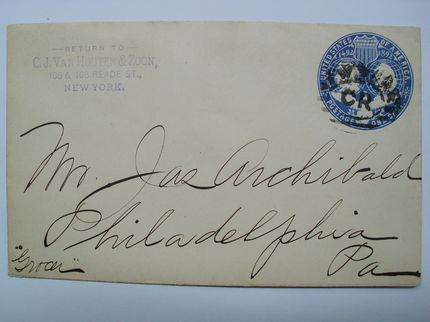 — RETURN TO —
C. J. VAN HOUTEN & ZOON,
106 & 108 READE ST.,
NEW YORK.
UNITED STATES OF AMERICA
1492 1892
CR
POSTAGE ONE
Mr. Jas Archibald
Philadelphia
"Grocer"
Pa